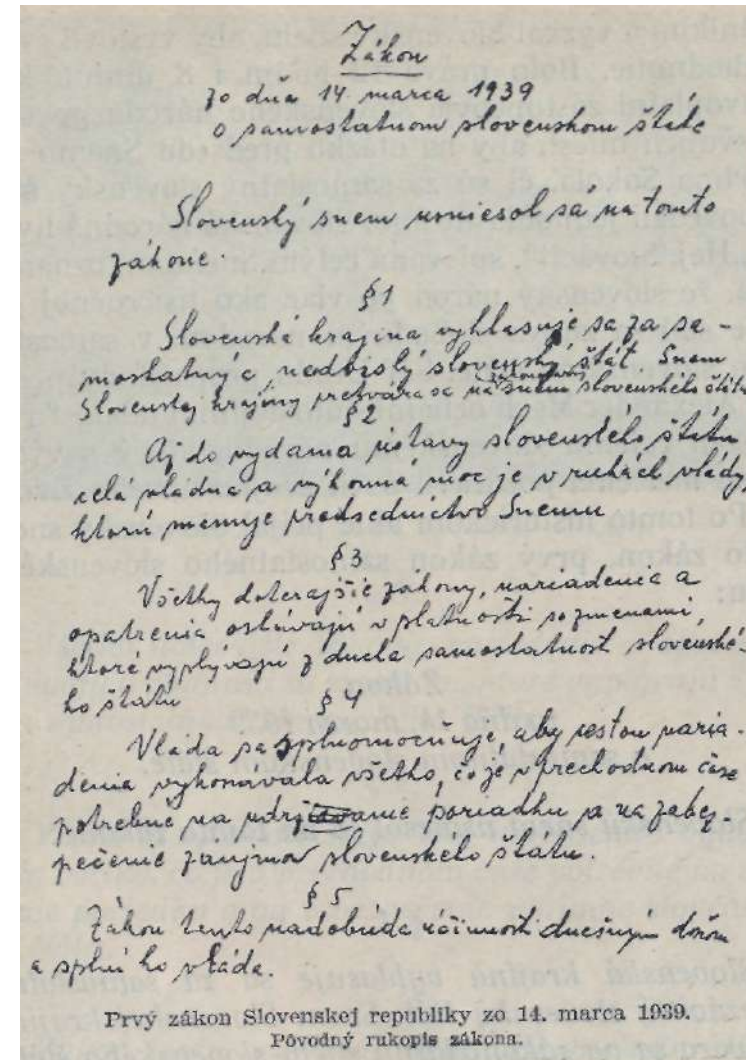 Zákon
zo dňa 14 marca 1939
o samostatnom slovenskom štáte
Slovenský snem usniesol sá na tomto
zákone.
§1
Slovenská krajina vyhlasuje sa za sa-
mostatný a neodvislý slovenský štát. Snem
Slovenskej krajiny pretvára sa na snem slovenského štátu
§2
Až do vydania ústavy slovenského štátu
celá vládna a výkonná moc je v rukách vlády,
ktorú menuje predsedníctvo Snemu
§3
Všetky doterajšie zákony, nariadenia a
opatrenia ostávajú v platnosti so zmenami,
ktoré vyplývajú z ducha samostatnosti slovenské-
ho štátu
§4
Vláda sa splnomocňuje, aby cestou naria-
denia vykonávala všetko, čo je v prechodnom čase
potrebné na udržanie poriadku a na zabez-
pečenie záujmov slovenského štátu.
§5
Zákon tento nadobúda účinnosti dnešným dňom
a splní ho vláda.
Prvý zákon Slovenskej republiky zo 14. marca 1939.
Pôvodný rukopis zákona.